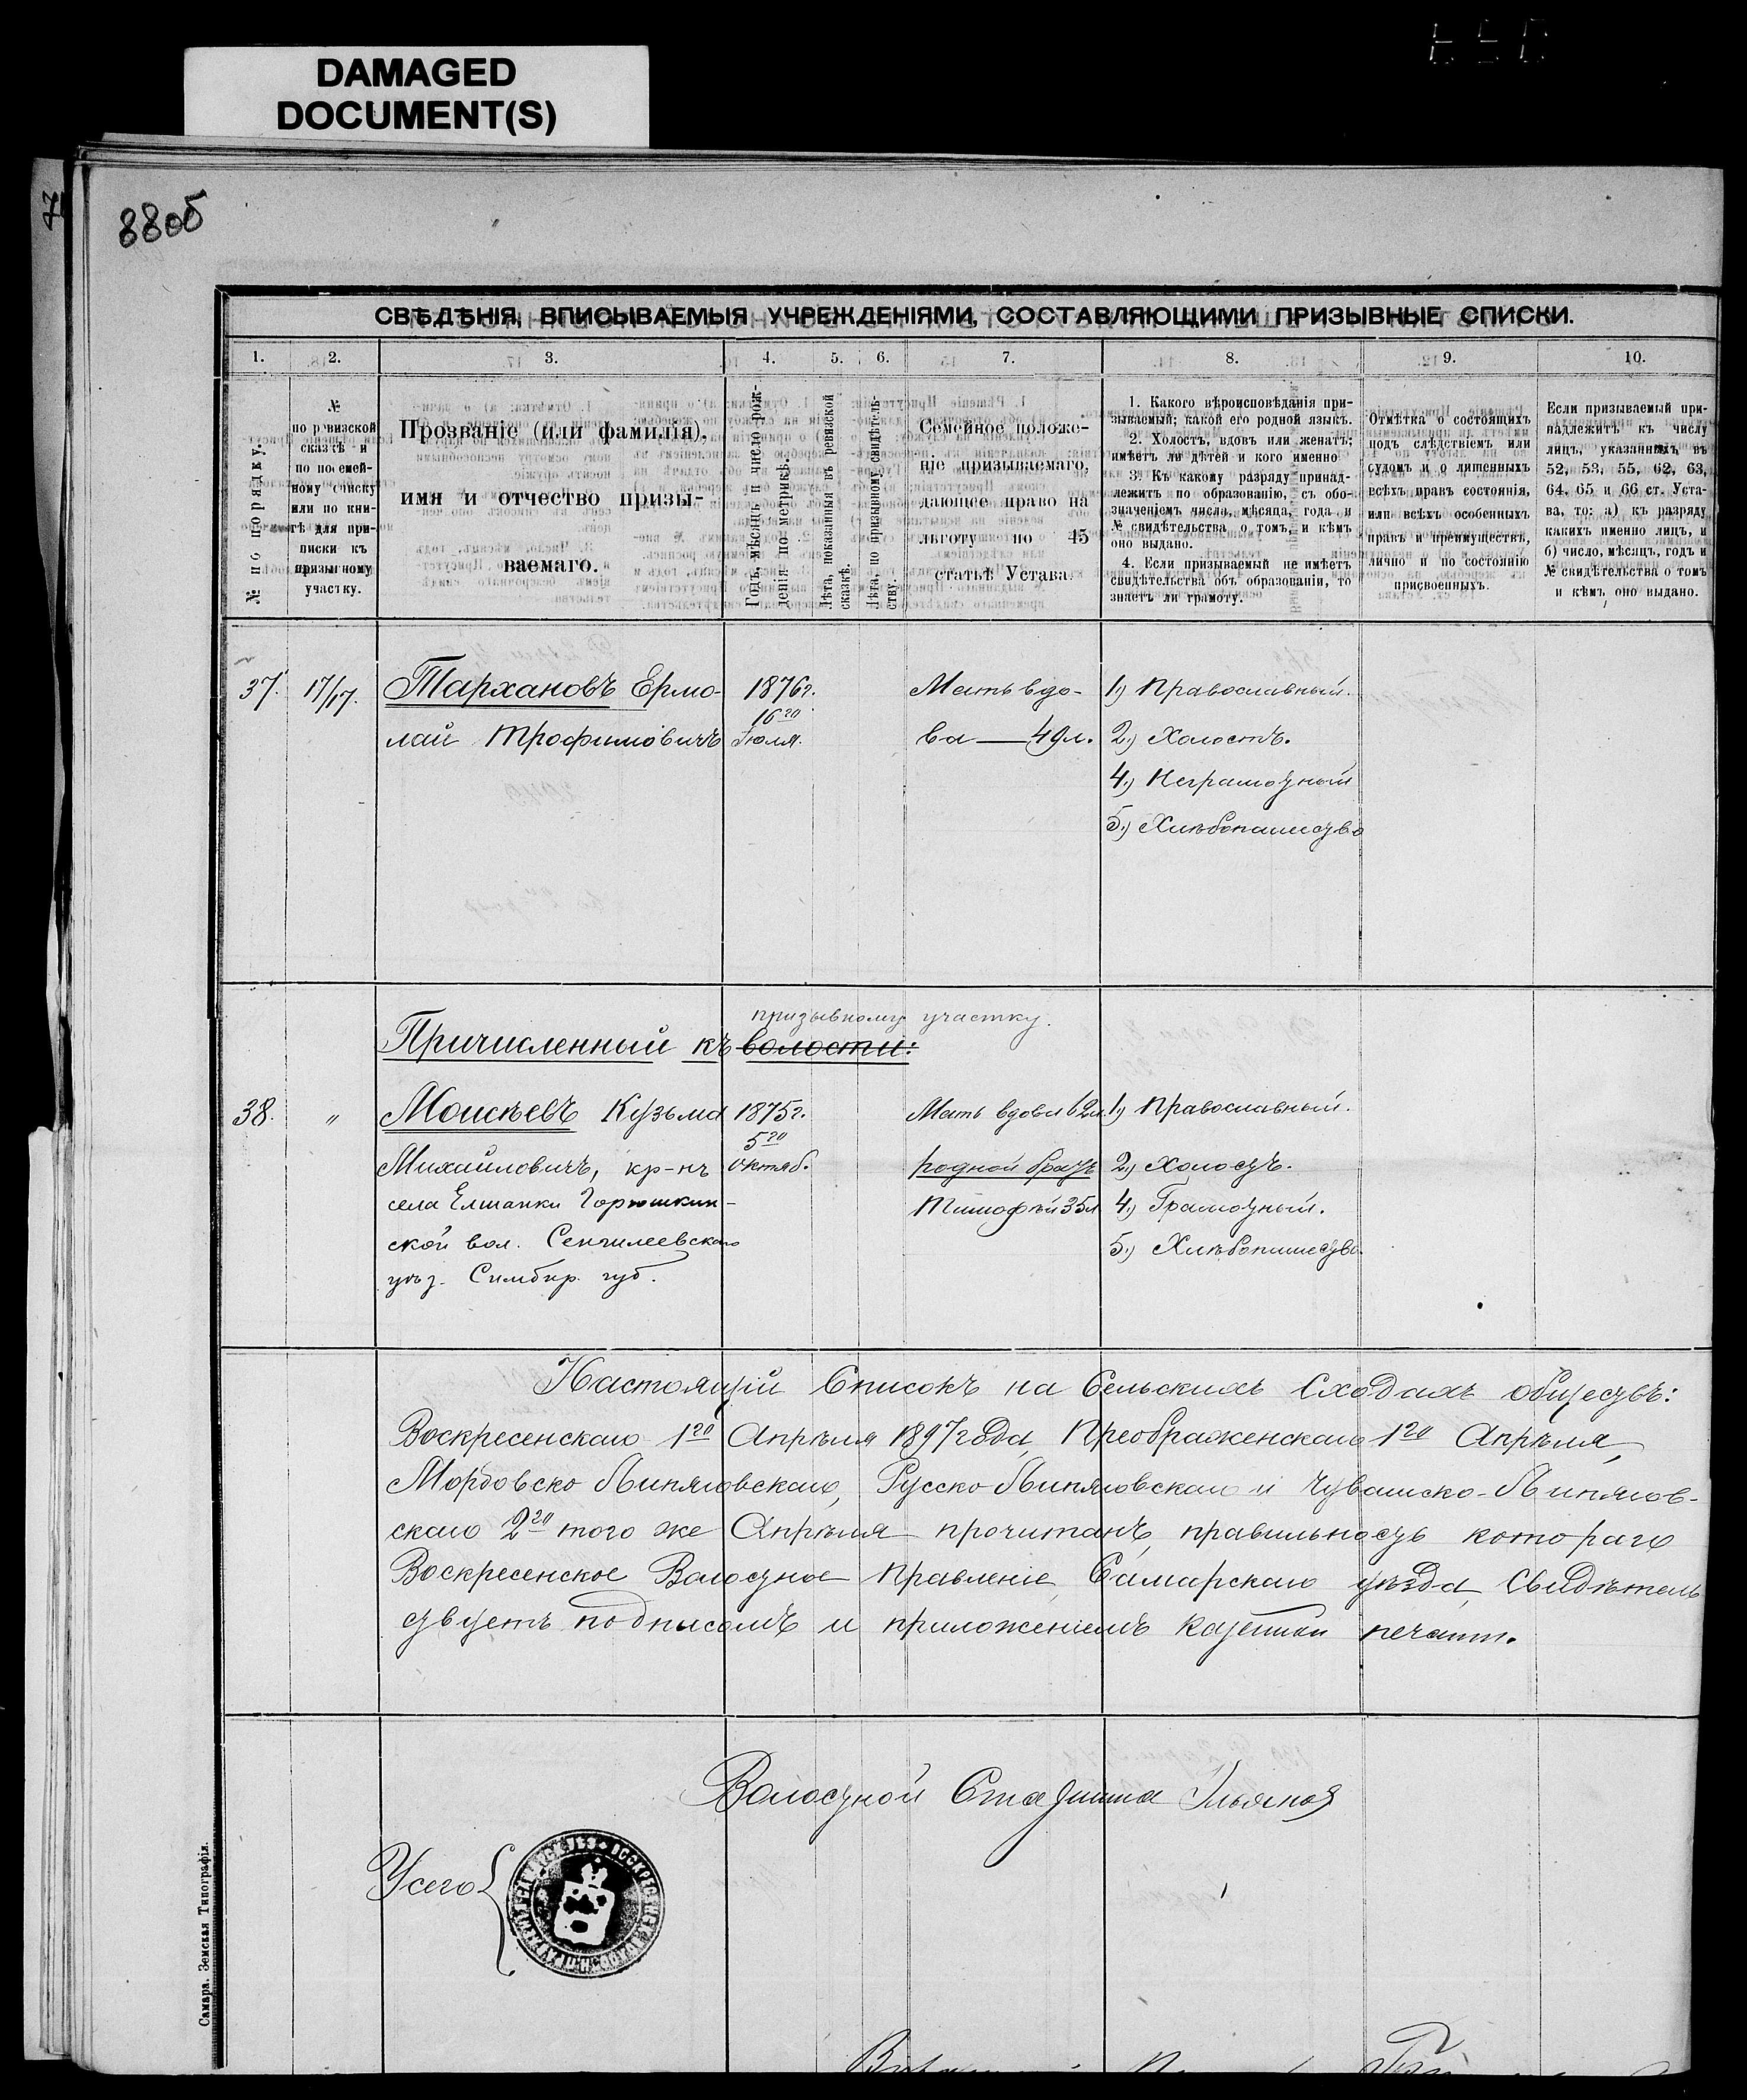 DAMAGED
DOCUMENT(S)
88об
СВѢДѢНІЯ, ВПИСЫВАЕМЫЯ УЧРЕЖДЕНІЯМИ, СОСТАВЛЯЮЩИМИ ПРИЗЫВНЫЕ СПИСКИ.
1. 2. 3. 4. 5. 6. 7. 8. 9. 10.
№ по порядку.
№
по ревизской
сказкѣ и
по посемей-
ному списку
или по кни-
гѣ для при-
писки къ
призывному
участку.
Прозваніе (или фамилія),
имя и отчество призы-
ваемаго.
Годъ, мѣсяцъ и число рож-
денія по метрикѣ.
Лѣта, показанныя въ ревизской
сказкѣ.
Лѣта, по призывному свидѣтель-
ству.
Семейное положе-
ніе призываемаго,
дающее право на
льготу по 45
статьѣ Устава.
1. Какого вѣроисповѣданія при-
зываемый; какой его родной языкъ.
2. Холостъ, вдовъ или женатъ;
имѣетъ ли дѣтей и кого именно
3. Къ какому разряду принад-
лежитъ по образованію, съ обо-
значеніемъ числа, мѣсяца, года и
№ свидѣтельства о томъ, и кѣмъ
оно выдано.
4. Если призываемый не имѣетъ
свидѣтельства объ образованіи, то
знаетъ ли грамоту.
Отмѣтка о состоящихъ
подъ слѣдствіемъ или
судомъ и о лишенныхъ
всѣхъ правъ состоянія,
или всѣхъ особенныхъ
правъ и преимуществъ,
лично и по состоянію
присвоенныхъ.
Если призываемый при-
надлежитъ къ числу
лицъ, указанныхъ въ
52, 53, 55, 62, 63,
64, 65 и 66 ст. Уста-
ва, то: а) къ разряду
какихъ именно лицъ, и
б) число, мѣсяцъ, годъ и
№ свидѣтельства о томъ
и кѣмъ оно выдано.
37. 17/17. Тархановъ Ермо- 1876г. Мать вдо- 1) Православный.
16го
лай Трофимовичъ Іюля. ва — 49л. 2.) Холостъ.
4.) Неграмотный
5.) Хлѣбопашество
призывному участку.
Причисленный къ волости:
38. " Моисѣевъ Кузьма 1875г. Мать вдова 62л. 1) Православный.
5го
Михайловичъ, кр-нъ Октяб. родной братъ 2.) Холостъ.
села Елшанки Горюшкин- Тимофѣй 35л 4.) Грамотный.
ской вол. Сенгилеевскаго 5.) Хлѣбопашество.
уѣз. Симбир. губ.
Настоящій Списокъ на Сельскихъ Сходахъ обществъ:
Воскресенскаго 1го Апрѣля 1897 года, Преображенскаго 1го Апрѣля,
Мордовско Липяговскаго, Русско Липяговскаго и Чувашско-Липягов-
скаго 2го того же Апрѣля прочитанъ, правильность котораго
Воскресенское Волостное Правленіе, Самарскаго уѣзда, Свидѣтель
ствуетъ подписомъ и приложеніемъ казенной печати.
Волостной Старшина Ильяно
Самара. Земская Типографія.